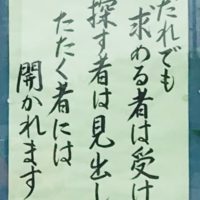 だれでも
求める者は受け
探す者は見出し
たたく者には
開かれます